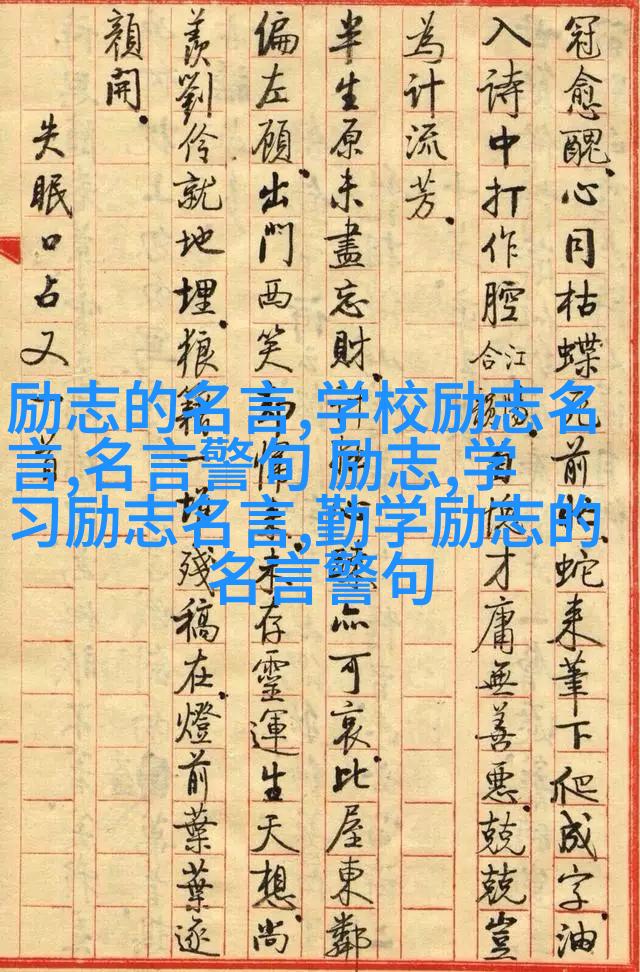 冠愈醜。心同枯蝶前蛇来筆下爬成字。油
入詩中打作腔江陽合韻。自愧才庸無善惡。兢兢豈
為計流芳。
半生原未盡忘財。亦可哀。比屋東鄰
偏左顧。出門西笑未存靈運生天想。尚
羨劉伶就地埋。狼籍一堆殘稿在。燈前葉葉逐
顏開。
失眠口占又一首
励志的名言,学校励志名
言,名言警句 励志,学
习励志名言,勤学励志的
名言警句